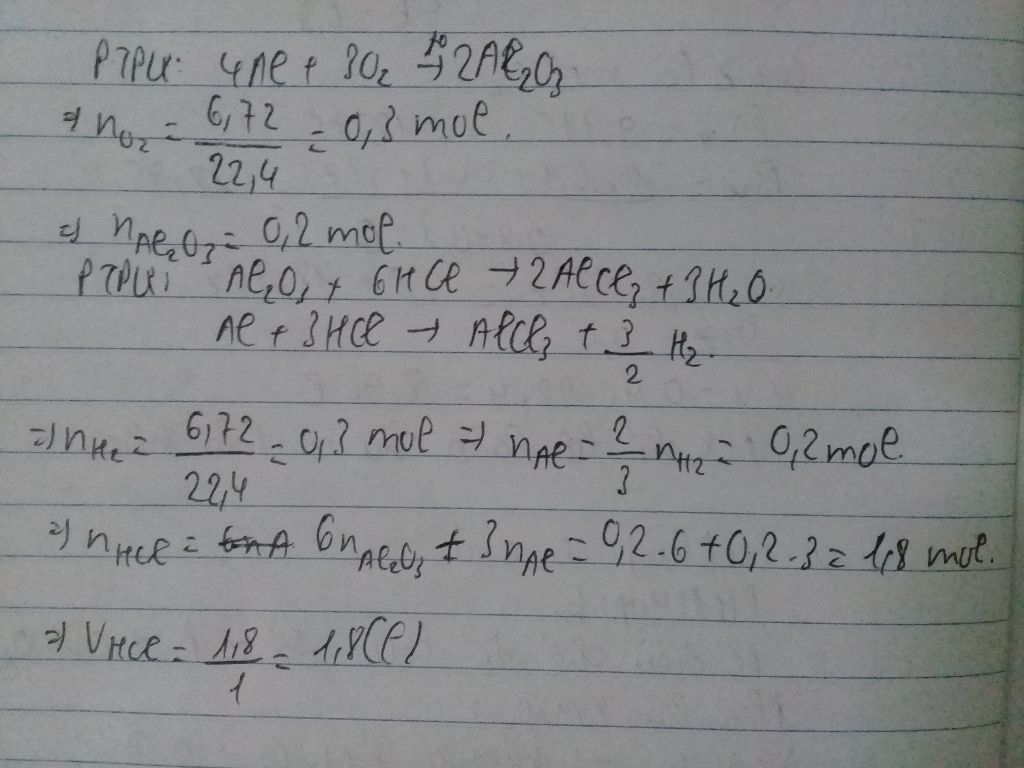 PTPƯ: 4Al + 3O₂ →(t°) 2Al₂O₃
⇒ nO₂ = 6,72/22,4 = 0,3 mol.
⇒ nAl₂O₃ = 0,2 mol.
PTPƯ: Al₂O₃ + 6HCl → 2AlCl₃ + 3H₂O.
Al + 3HCl → AlCl₃ + 3/2 H₂.
⇒ nH₂ = 6,72/22,4 = 0,3 mol ⇒ nAl = 2/3 nH₂ = 0,2 mol.
⇒ nHCl = 6nAl₂O₃ + 3nAl = 0,2.6 + 0,2.3 = 1,8 mol.
⇒ VHCl = 1,8/1 = 1,8(l)